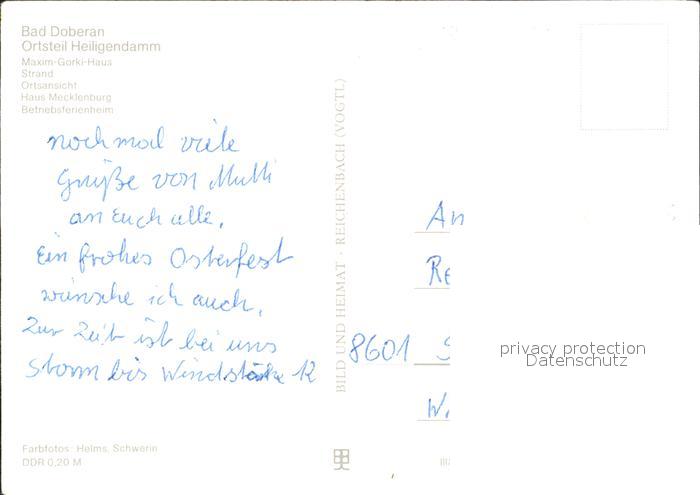 Bad Doberan
Ortsteil Heiligendamm
Maxim-Gorki-Haus
Strand
Ortsansicht
Haus Mecklenburg
Betriebsferienheim
nochmal viele
Grüße von Mutti
an Euch alle.
Ein frohes Osterfest
wünsche ich auch.
Zur Zeit ist bei uns
Storm bis Windstärke 12
Farbfotos: Helms, Schwerin
DDR 0,20 M
BILD UND HEIMAT · REICHENBACH (VOGTL)
An
Re
8601 S
W.
privacy protection
Datenschutz